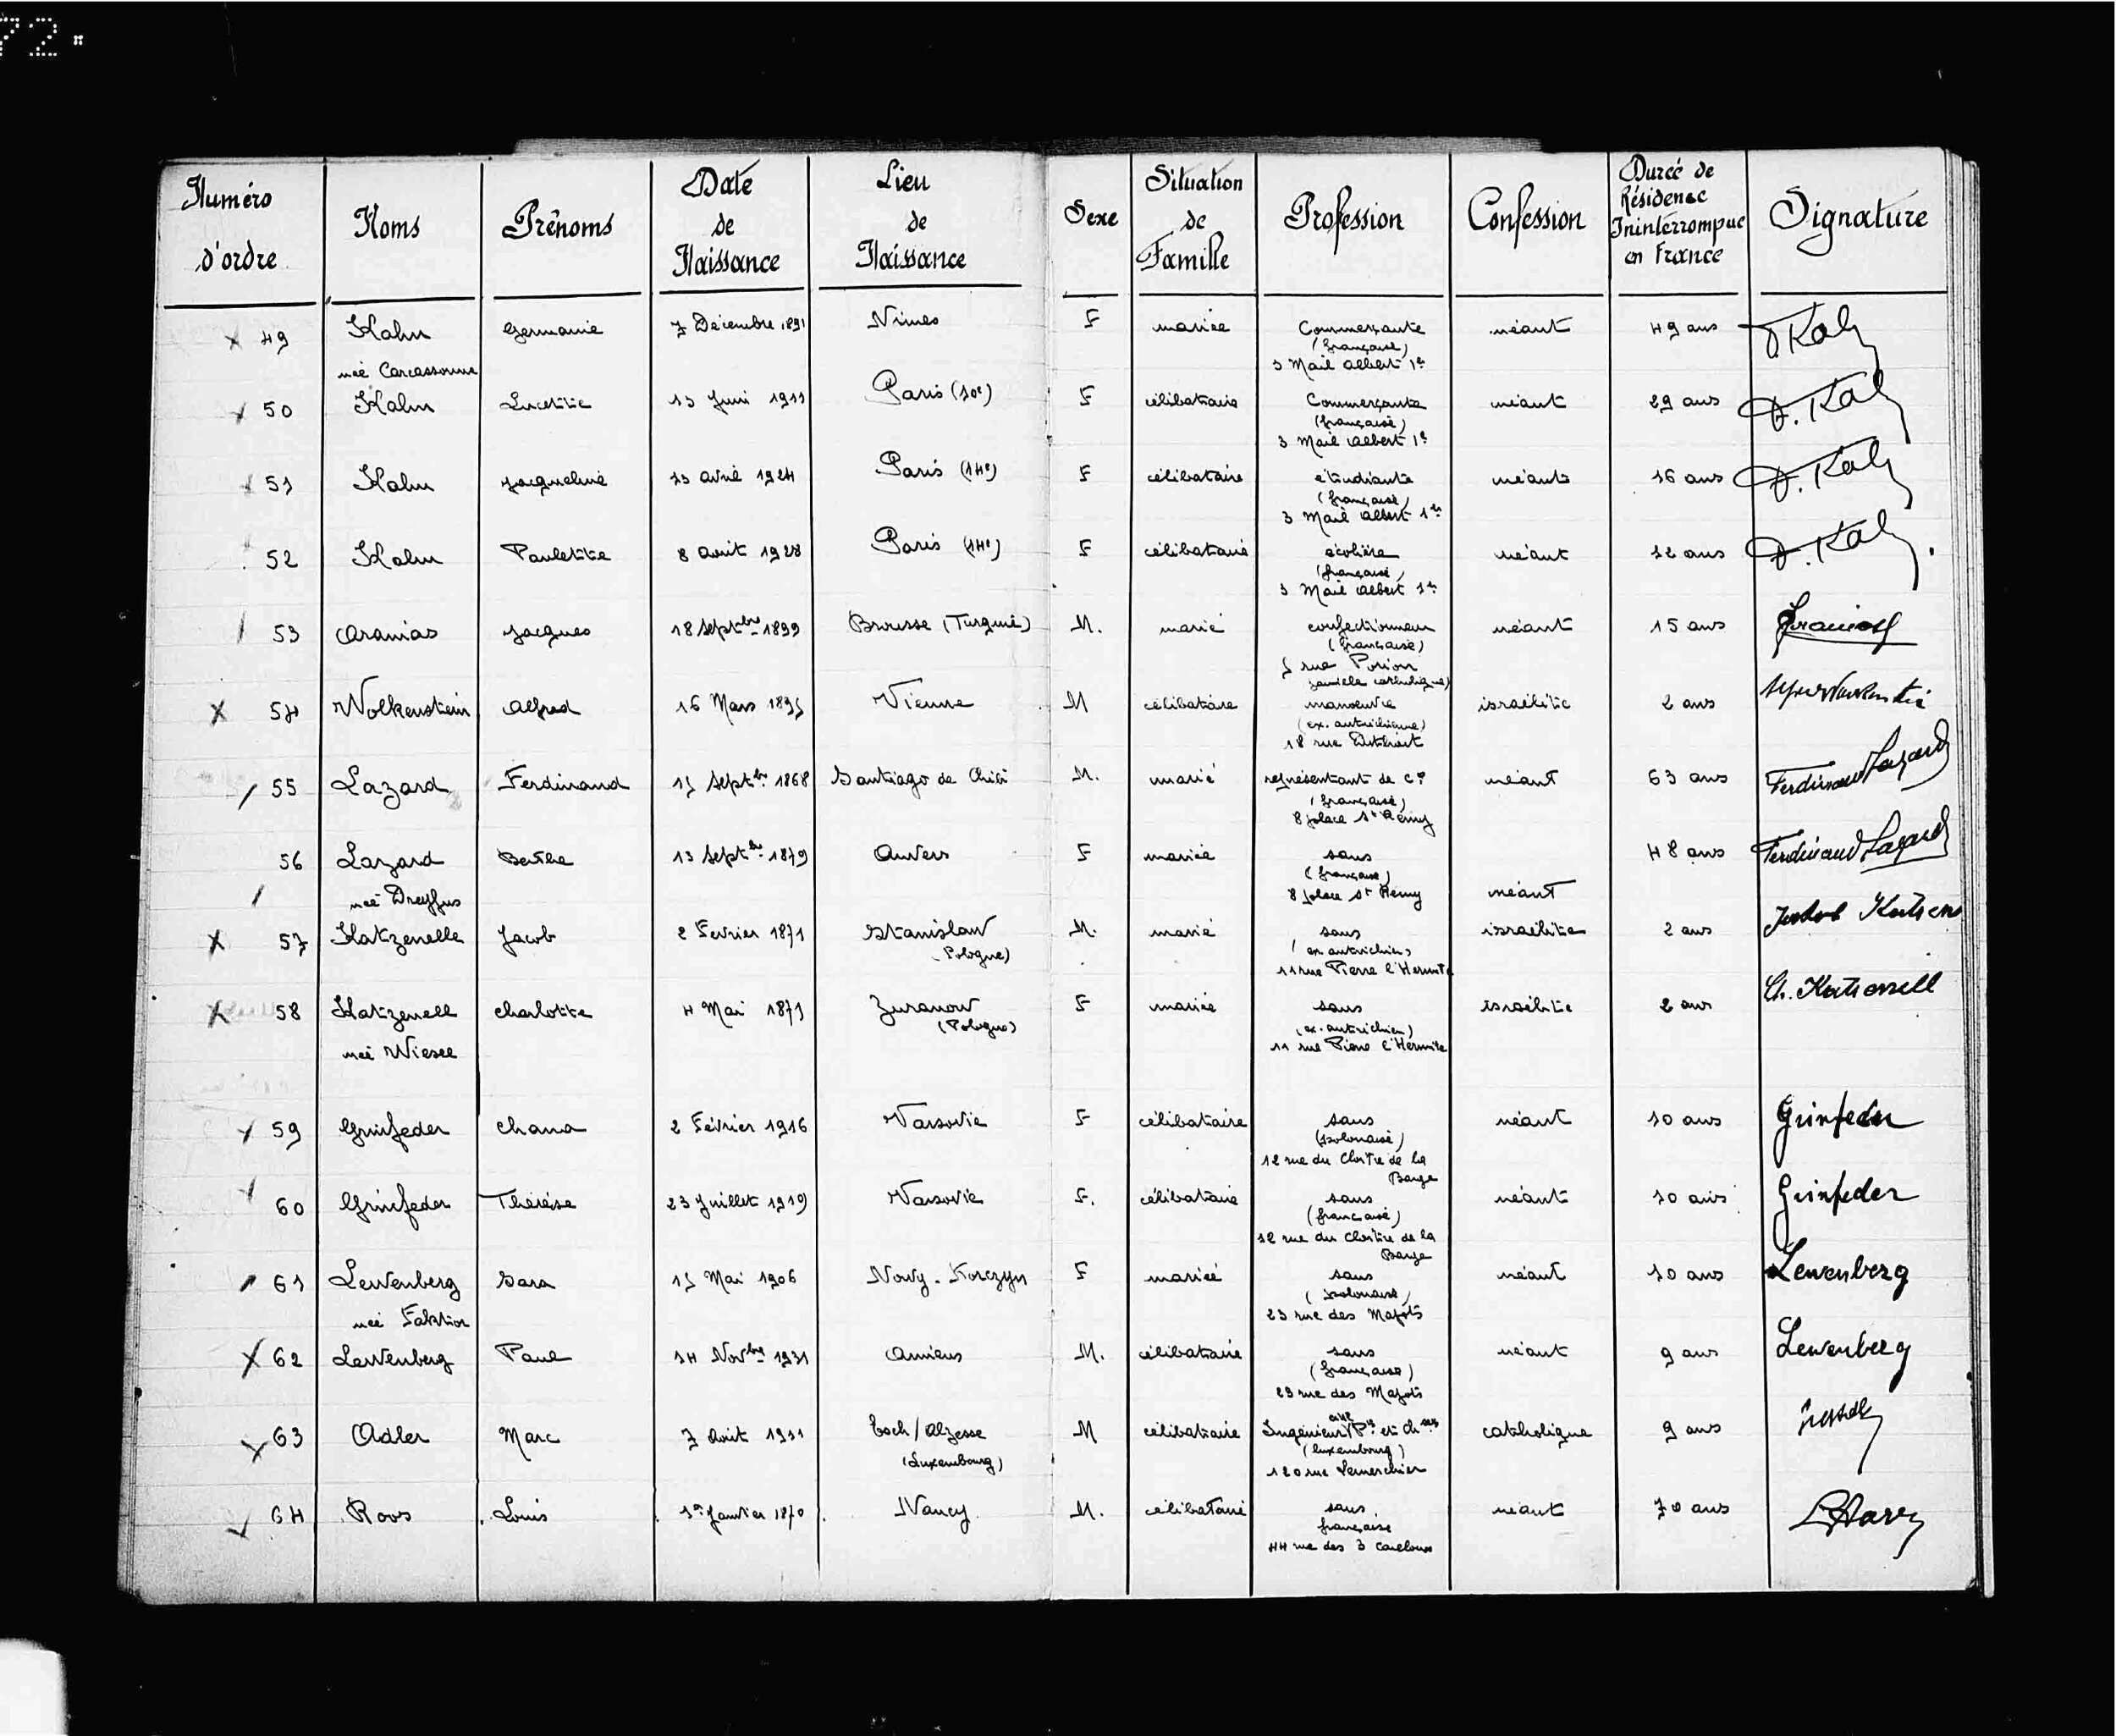 72
Numéro d'ordre Noms Prénoms Date de Naissance Lieu de Naissance Sexe Situation de Famille Profession Confession Durée de Résidence Ininterrompue en France Signature
x 49 Kahn Germanie 7 Décembre 1891 Nimes F mariée Commerçante néant 49 ans
(française)
née Carcassonne 3 Mail Albert 1er
50 Kahn Lucette 13 Juin 1911 Paris (10e) F célibataire Commerçante néant 29 ans
(française)
3 Mail Albert 1er
51 Kahn Jacqueline 13 avril 1924 Paris (14e) F célibataire étudiante néant 16 ans
(française)
3 Mail Albert 1er
52 Kahn Paulette 8 août 1928 Paris (14e) F célibataire écolière néant 12 ans
(française)
3 Mail Albert 1er
53 Aranias Jacques 18 Septbre 1899 Brousse (Turquie) M. marié confectionneur néant 15 ans
(française)
5 rue Porion
famille catholique)
x 54 Wolkenstein Alfred 16 Mars 1895 Vienne M célibataire manoeuvre israélite 2 ans
(ex. autrichienne)
18 rue
/ 55 Lazard Ferdinand 15 Septbre 1868 Santiago de Chili M. marié représentant de Ce néant 63 ans Ferdinand Lazard
(française)
8 place St Rémy
56 Lazard Berthe 13 Septbre 1879 Anvers F mariée sans 48 ans Ferdinand Lazard
(française)
/ née Dreyfus 8 place St Rémy néant
x 57 Katzenelle Jacob 2 Fevrier 1871 Stanislaw M. marié sans israélite 2 ans
(Pologne) (ex autrichien)
11 rue Pierre l'Hermite
x 58 Katzenell Charlotte 4 Mai 1871 Zuranow F mariée sans israélite 2 ans Ch. Katzenell
(Pologne) (ex. autrichien)
née Wiesel 11 rue Pierre l'Hermite
59 Grinfeder Chana 2 Février 1916 Varsovie F célibataire sans néant 10 ans Grinfeder
(polonaise)
12 rue du Cloître de la
Barge
60 Grinfeder Thérèse 23 Juillet 1919 Varsovie F. célibataire sans néant 10 ans Grinfeder
(française)
12 rue du Cloître de la
Barge
61 Lewenberg Sara 15 Mai 1906 Nowy-Korczyn F mariée sans néant 10 ans Lewenberg
(polonaise)
née Faktor 23 rue des Majots
x 62 Lewenberg Paul 14 Novbre 1931 Amiens M. célibataire sans néant 9 ans Lewenberg
(française)
23 rue des Majots
63 Adler Marc 7 Août 1911 Esch/Alzesse M célibataire Ingénieur Pts et Chées catholique 9 ans
(Luxembourg) (luxembourg)
120 rue Lemerchier
64 Roos Louis 1er Janvier 1870 Nancy M. célibataire sans néant 70 ans
française
44 rue des 3 Cailloux